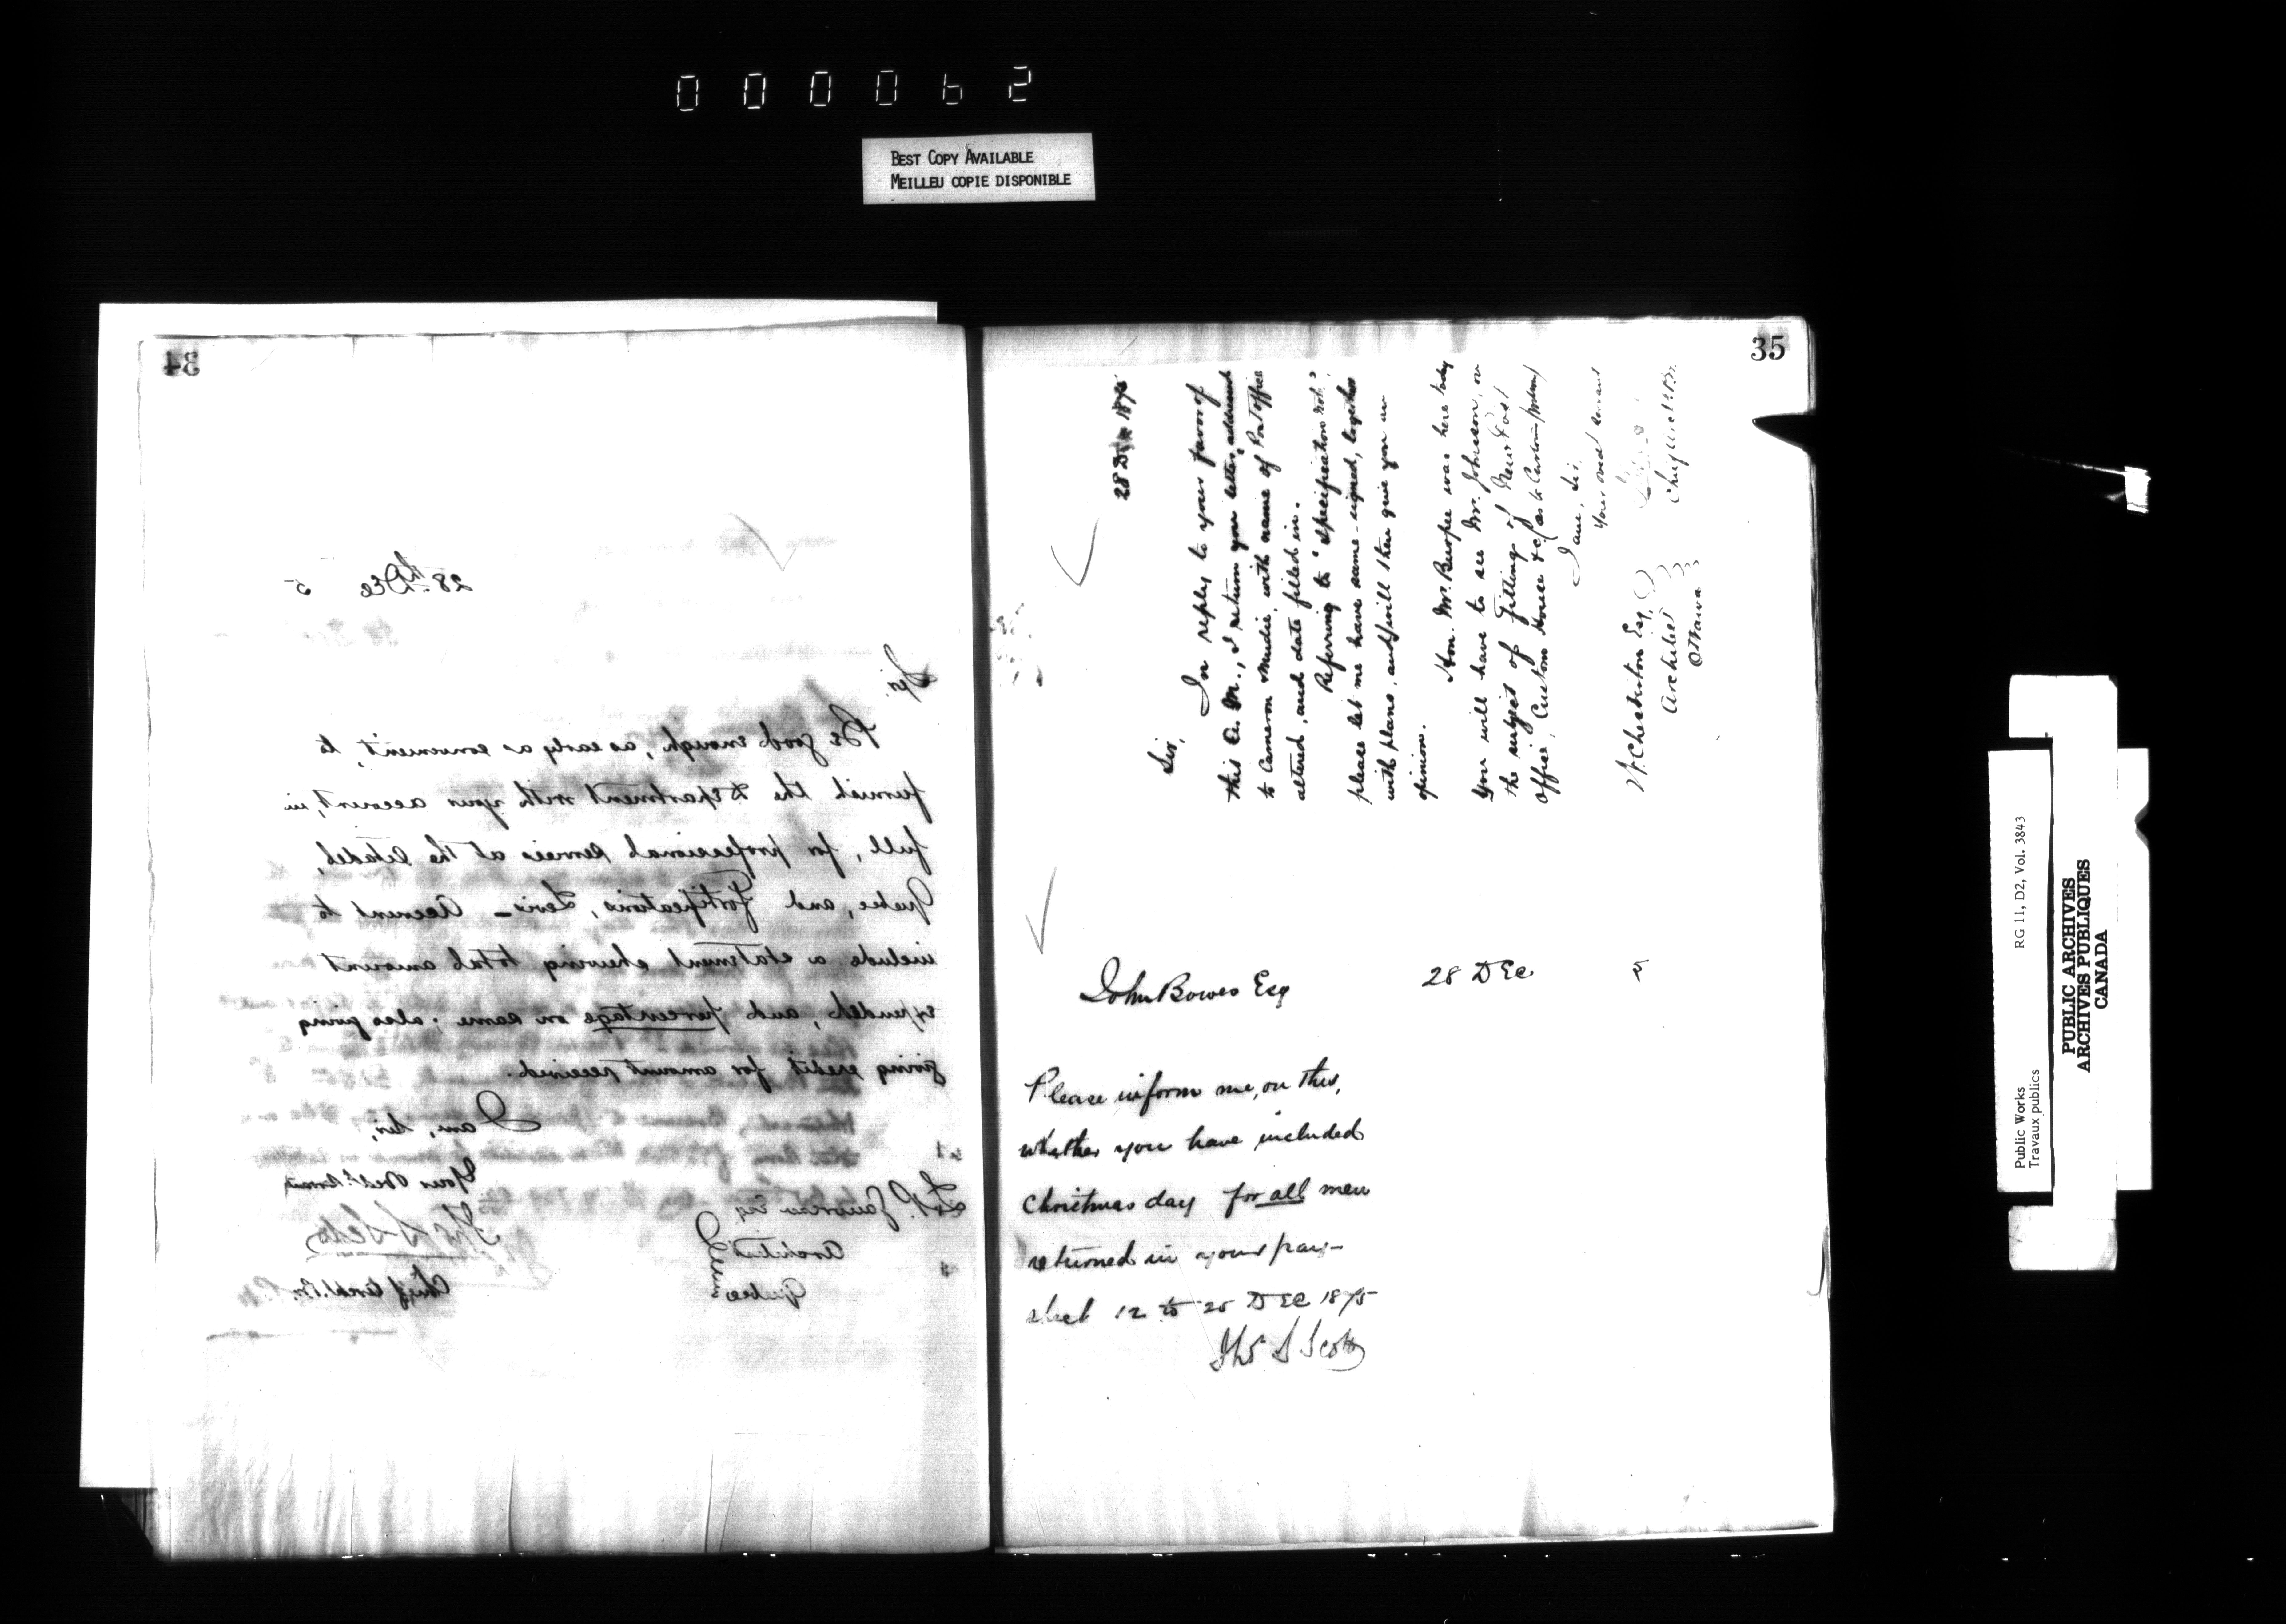 000062
BEST COPY AVAILABLE
MEILLEU COPIE DISPONIBLE
34
28th Dec 5
Sir.
Be good enough, as early as convenient, to
furnish the Department with your account, in
full, for professional services at the Citadel,
Quebec, and Fortifications, Levis - Account to
include a statement shewing total amount
expended, and percentage on same; also giving
giving credit for amount received.
I am, Sir,
Your Obedt. Servant
Thos S Scott
Chief Archt.
Esq
Architect
Quebec
35
28 Dec 1875
Sir,
In reply to your favor of
this A.M., I return you letter, addressed
to Cameron Mudie, with name of Post Office
altered, and date filled in.
Referring to "specification No. 2"
please let me have same - signed, together
with plans, and will then give you an
opinion.
Hon. Mr. Burpee was here today
you will have to see Mr. Johnson, on
the subject of fitting of New Post
Office, Custom House &c (as to Custom
I am, Sir,
Your Obed servant
W. Chesterton Esq.
Architect
Ottawa
John Bowes Esq 28 Dec 5
Please inform me, on this,
whether you have included
Christmas day for all men
returned in your pay-
sheet 12 to 25 DEC 1875
Thos S Scott
Public Works RG 11, D2, Vol. 3843
Travaux publics
PUBLIC ARCHIVES
ARCHIVES PUBLIQUES
CANADA